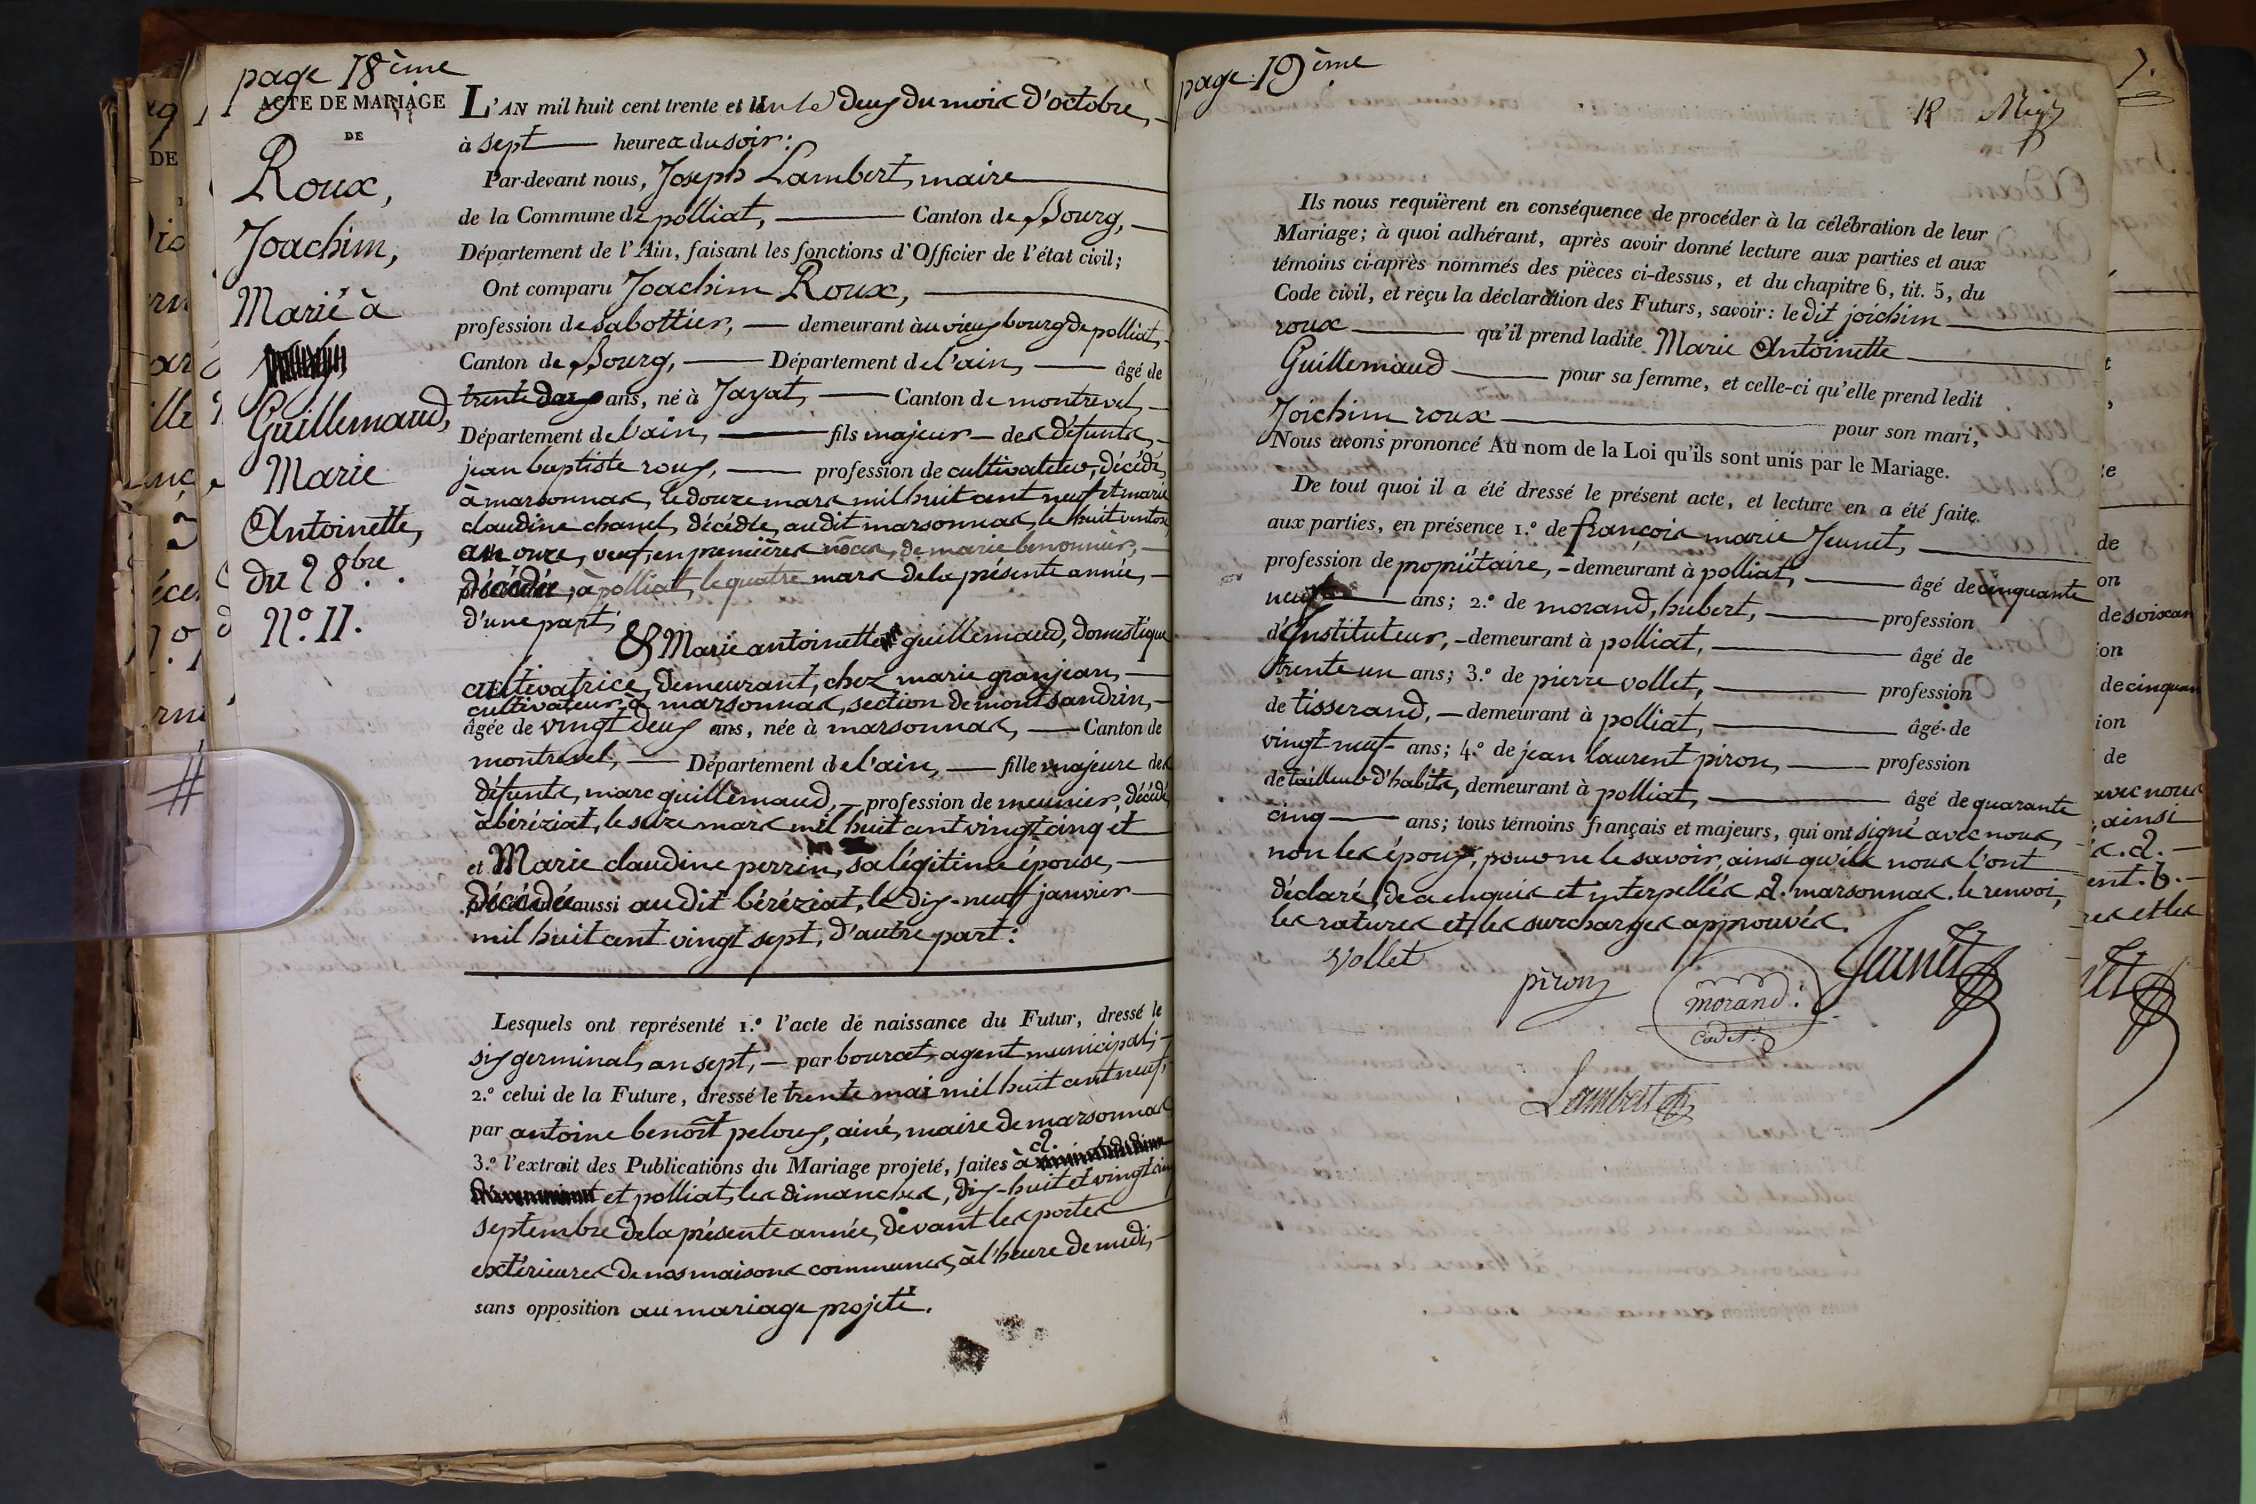 page 18ème
ACTE DE MARIAGE
DE
Roux,
Joachim,
Marié à
Guillemaud,
Marie
Antoinette,
du 2 8bre.
N.º 11.
L'AN mil huit cent trente et un le deux du mois d'octobre,
à sept heures du soir:
Par-devant nous, Joseph Lambert, maire
de la Commune de polliat, Canton de Bourg,
Département de l'Ain, faisant les fonctions d'Officier de l'état civil;
Ont comparu Joachim Roux,
profession de sabottier, demeurant au vieux bourg de polliat,
Canton de Bourg, Département de l'ain, âgé de
trente deux ans, né à Jayat, Canton de montrevel,
Département de l'ain, fils majeur des défunts,
jean baptiste roux, profession de cultivateur, décédé,
à marsonnas, le douze mars mil huit cent neuf et marie
claudine chanel, décédée, au dit marsonnas, le huit ventose
an onze, veuf, en premières nôces, de marie benonnier,
décédée, à polliat, le quatre mars de la présente année,
d'une part;
& Marie antoinette guillemaud, domestique
cultivatrice, demeurant, chez marie granjean,
cultivateur, à marsonnas, section de montsandrin,
âgée de vingt deux ans, née à marsonnas, Canton de
montrevel, Département de l'ain, fille majeure des
défunts, marc guillemaud, profession de meunier, décédé,
à béréziat, le seize mars mil huit cent vingt cinq et
et Marie claudine perrin, sa légitime épouse,
décédée aussi au dit béréziat, le dix-neuf janvier
mil huit cent vingt sept, d'autre part:
Lesquels ont représenté 1.º l'acte de naissance du Futur, dressé le
six germinal, an sept, par bourcet, agent municipal;
2.º celui de la Future, dressé le trente mai mil huit cent neuf,
par antoine benoît peloux, ainé, maire de marsonnas
3.º l'extrait des Publications du Mariage projeté, faites à a.
et polliat, les dimanches, dix-huit et vingt cinq
septembre de la présente année, devant les portes
extérieures de nos maisons communes, à l'heure de midi,
sans opposition au mariage projeté.
page 19ème
Ils nous requièrent en conséquence de procéder à la célébration de leur
Mariage; à quoi adhérant, après avoir donné lecture aux parties et aux
témoins ci-après nommés des pièces ci-dessus, et du chapitre 6, tit. 5, du
Code civil, et reçu la déclaration des Futurs, savoir: le dit joichim
roux qu'il prend ladite Marie Antoinette
Guillemaud pour sa femme, et celle-ci qu'elle prend ledit
Joichim roux pour son mari,
Nous avons prononcé Au nom de la Loi qu'ils sont unis par le Mariage.
De tout quoi il a été dressé le présent acte, et lecture en a été faite
aux parties, en présence 1.º de françois marie Jeunet,
profession de propriétaire, demeurant à polliat, âgé de cinquante
neuf ans; 2.º de morand, hubert, profession
d'instituteur, demeurant à polliat, âgé de
trente un ans; 3.º de pierre vollet, profession
de tisserand, demeurant à polliat, âgé de
vingt-neuf ans; 4.º de jean laurent piron, profession
de tailleur d'habits, demeurant à polliat, âgé de quarante
cinq ans; tous témoins français et majeurs, qui ont signé avec nous,
non les époux, pour ne le savoir, ainsi qu'ils nous l'ont
déclaré, de ce enquis et interpellés a. marsonnas. le renvoi,
les ratures et les surcharges approuvés.
Vollet
piron
morand.
cadet.
Jeunet
Lambert